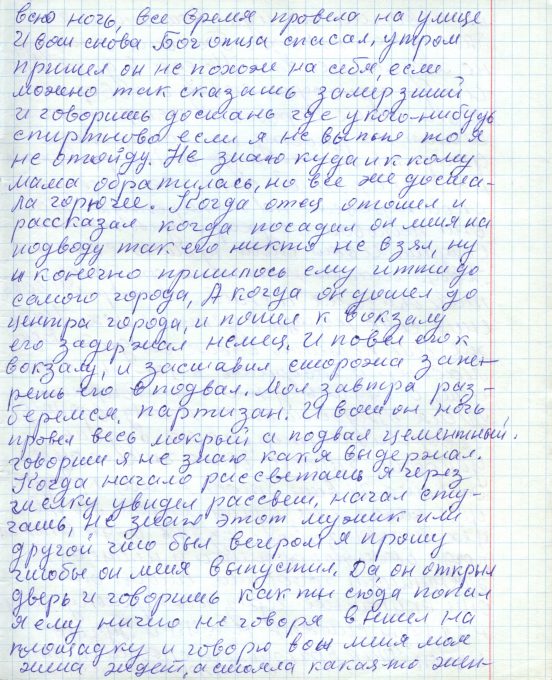 всю ночь, все время провела на улице
И вот снова Бог отца спасал, утром
пришел он не похож на себя, если
можно так сказать замерзший
и говорить достань где у кого-нибудь
спиртново если я не выпью то я
не отойду. Не знаю куда и к кому
мама обратилась, но все же доста-
ла горючее. Когда отец отошел и
рассказал когда посадил он меня на
подводу так его никто не взял, ну
и конечно пришлось ему итти до
самого города, А когда он дошел до
центра города, и пошел к вокзалу
его задержал немец. И повел его к
вокзалу, и заставил сторожа запе-
реть его в подвал. Мол завтра раз-
беремся, партизан. И вот он ночь
провел весь мокрый а подвал цементный.
говорит я не знаю как я выдержал.
Когда начало рассветать я через
увидел рассвет, начал сту-
чать, не знаю этот мужик или
другой что был вечером я прошу
чтобы он меня выпустил. Да, он открыл
дверь и говорить как ты сюда попал
я ему ничго не говоря вышел на
площадку и говорю вот меня моя
жена ждет, а стояла какая-то жен-